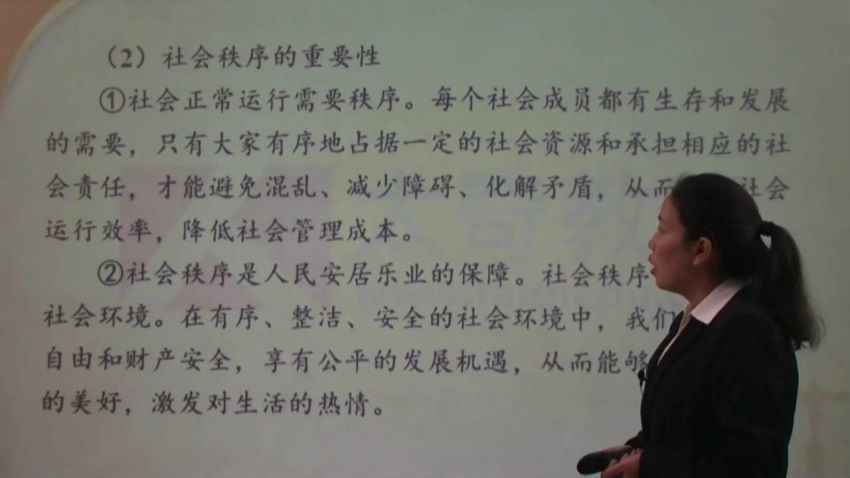 （2）社会秩序的重要性
①社会正常运行需要秩序。每个社会成员都有生存和发展
的需要，只有大家有序地占据一定的社会资源和承担相应的社
会责任，才能避免混乱、减少障碍、化解矛盾，从而 社会
运行效率，降低社会管理成本。
②社会秩序是人民安居乐业的保障。社会秩序
社会环境。在有序、整洁、安全的社会环境中，我们
自由和财产安全，享有公平的发展机遇，从而能够
的美好，激发对生活的热情。